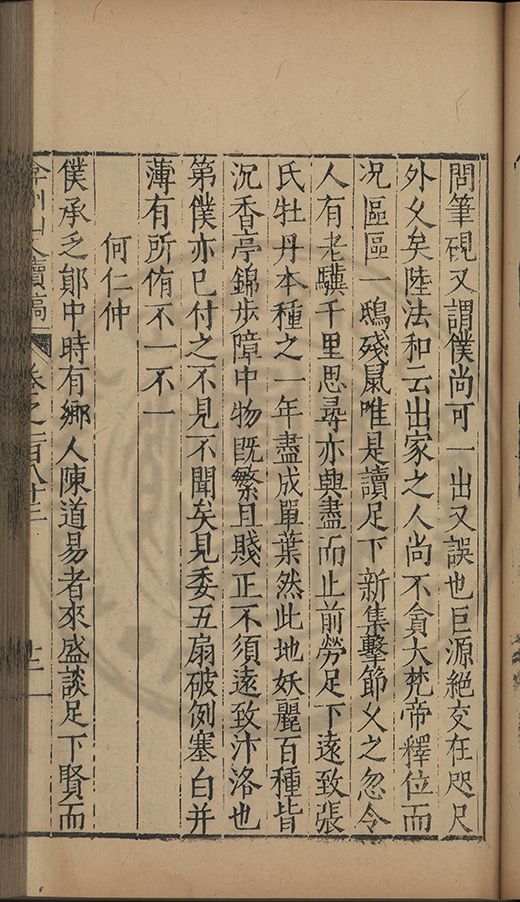 問筆硯又謂僕尚可一出又誤也巨源絶交在咫尺
外乆矣陸法和云出家之人尚不貪大梵帝釋位而
况區區一鴟殘鼠唯是讀足下新集擊節乆之忽令
人有老驥千里思尋亦與盡而止前勞足下遠致張
氏牡丹本種之一年盡成單葉然此地妖麗百種皆
沉香亭錦步障中物既繁且賤正不須遠致汴洛也
第僕亦已付之不見不聞矣見委五扇破例塞白并
薄有所侑不一不一
何仁仲
僕承乏鄖中時有鄉人陳道易者來盛談足下賢而
弇州山人續稿 卷之一百八十三 十二